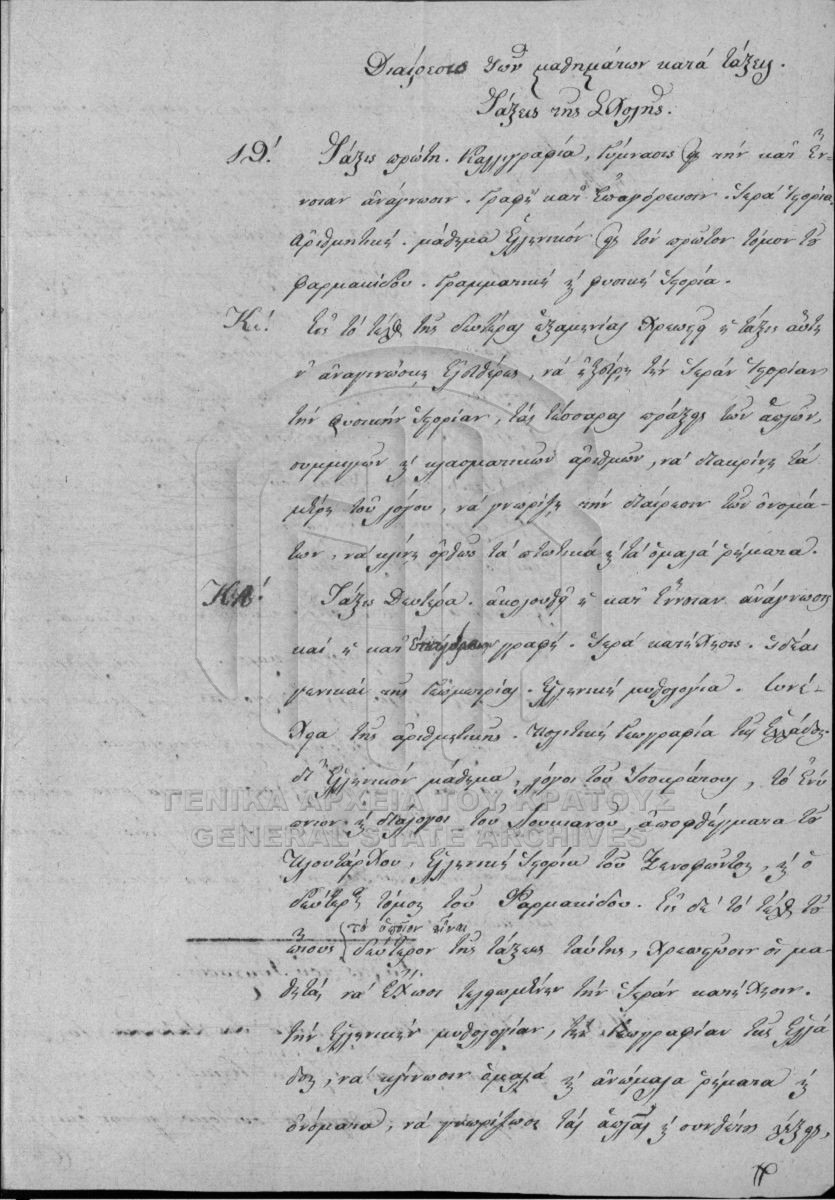 Διαίρεσις τῶν μαθημάτων κατὰ τάξεις.
Τάξεις τῆς Σχολῆς.
ΙΘ΄. Τάξις πρώτη. Καλλιγραφία, γύμνασις εἰς τὴν κατ' ἔν-
νοιαν ἀνάγνωσιν. Γραφὴ καθ' ὑπαγόρευσιν. Ἱερὰ Ἱστορία.
Ἀριθμητική. μάθημα Ἑλληνικὸν εἰς τὸν πρῶτον τόμον τοῦ
Φαρμακίδου. Γραμματικὴ καὶ φυσικὴ ἱστορία.
Κ΄. Εἰς τὸ τέλος τῆς δευτέρας ἑξαμηνίας χρεωστεῖ ἡ τάξις αὕτη
ν' ἀναγινώσκῃ ἐλευθέρως, νὰ ἐξεύρῃ τὴν Ἱερὰν Ἱστορίαν
τὴν φυσικὴν ἱστορίαν, τὰς τέσσαρας πράξεις τῶν ἁπλῶν,
συμμιγῶν καὶ κλασματικῶν ἀριθμῶν, νὰ διακρίνῃ τὰ
μέρη τοῦ λόγου, νὰ γνωρίζῃ τὴν διαίρεσιν τῶν ὀνομά-
των, νὰ κλίνῃ ὀρθῶς τὰ πτωτικὰ καὶ τὰ ὁμαλὰ ῥήματα.
ΚΑ΄. Τάξις Δευτέρα. ἀκολουθεῖ ἡ κατ' ἔννοιαν ἀνάγνωσις
καὶ ἡ καθ' ὑπαγόρευσιν γραφή. Ἱερὰ κατήχησις. ἰδέαι
γενικαὶ τῆς Γεωμετρίας. Ἑλληνικὴ μυθολογία. Συνέ-
χεια τῆς ἀριθμητικῆς. Πολιτικὴ Γεωγραφία τῆς Ἑλλάδος.
δι' Ἑλληνικὸν μάθημα, λόγοι τοῦ Ἰσοκράτους, τὸ Ἐνύ-
πνιον καὶ διάλογοι τοῦ Λουκιανοῦ ἀποφθέγματα τοῦ
Πλουτάρχου, Ἑλληνικὴ ἱστορία τοῦ Ξενοφῶντος, καὶ ὁ
δεύτερος τόμος τοῦ Φαρμακίδου. Εἰς δὲ τὸ τέλος τοῦ
τὸ ὁποῖον εἶναι
ἔτους δεύτερον τῆς τάξεως ταύτης, χρεωστοῦσιν οἱ μα-
θηταὶ νὰ ἔχωσι τελειωμένην τὴν Ἱερὰν κατήχησιν.
τὴν Ἑλληνικὴν μυθολογίαν, τὴν Γεωγραφίαν τῆς Ἑλλά-
δος, νὰ κλίνωσιν ὁμαλὰ καὶ ἀνώμαλα ῥήματα καὶ
ὀνόματα, νὰ γνωρίζωσι τὰς ἁπλᾶς καὶ συνθέτους λέξεις,
ΓΕΝΙΚΑ ΑΡΧΕΙΑ ΤΟΥ ΚΡΑΤΟΥΣ
GENERAL STATE ARCHIVES